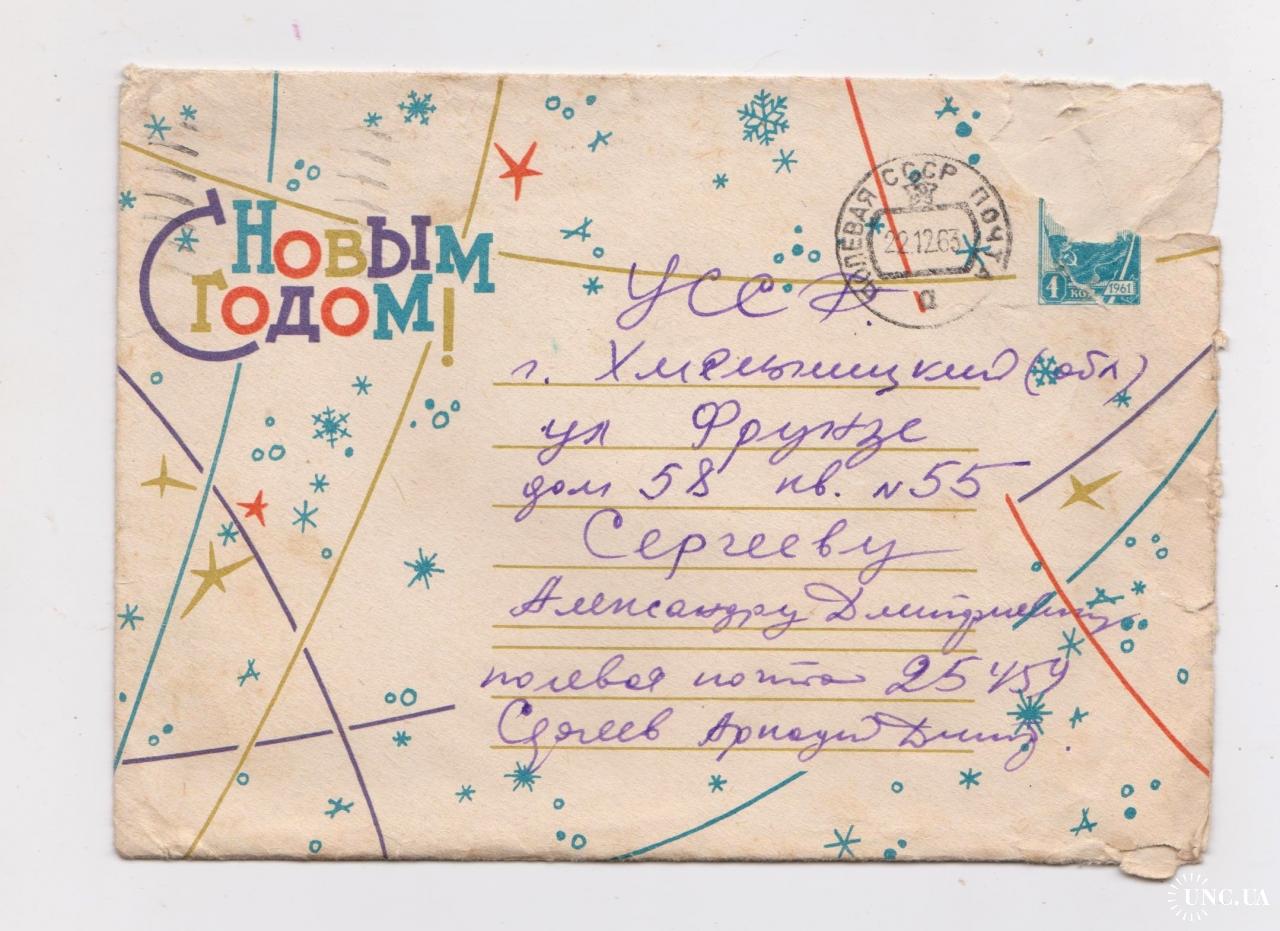 С Новым
Годом!
ПОЛЕВАЯ СССР ПОЧТА
22.12.63
а
4
КОП
1961
УССР.
г. Хмельницкий (обл)
ул Фрунзе
дом 58 кв. № 55
Сергееву
Александру Дмитриевичу
полевая почта 25459
Аркадий Дмит.
UNC.UA